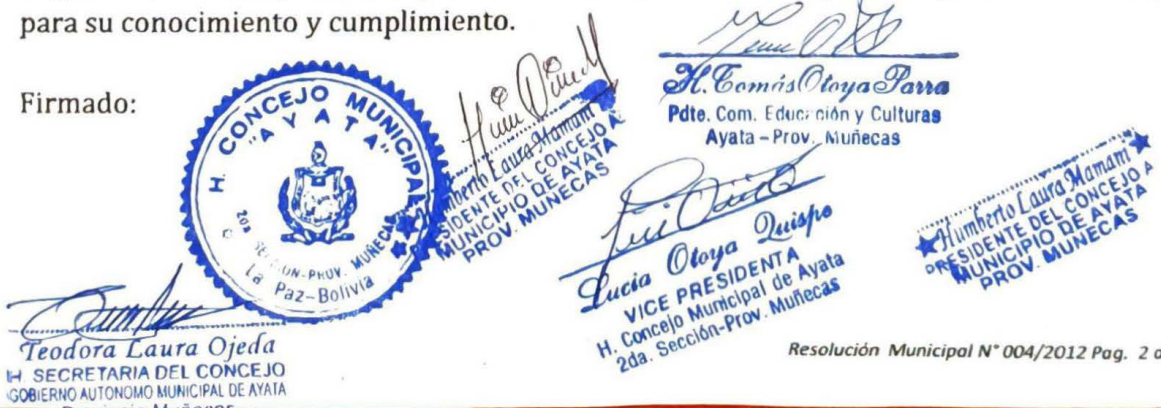 para su conocimiento y cumplimiento.
Firmado:
H. CONCEJO MUNICIPAL
"AYATA"
2da SECCION-PROV. MUÑECAS
La Paz-Bolivia
Humberto Laura Mamani
PRESIDENTE DEL CONCEJO A
MUNICIPIO DE AYATA
PROV. MUÑECAS
H. Tomás Otoya Parra
Pdte. Com. Educación y Culturas
Ayata – Prov. Muñecas
Lucia Otoya Quispe
VICE PRESIDENTA
H. Concejo Municipal de Ayata
2da. Sección-Prov. Muñecas
Humberto Laura Mamani
PRESIDENTE DEL CONCEJO A
MUNICIPIO DE AYATA
PROV. MUÑECAS
Teodora Laura Ojeda
H. SECRETARIA DEL CONCEJO
GOBIERNO AUTONOMO MUNICIPAL DE AYATA
Resolución Municipal N° 004/2012 Pag. 2